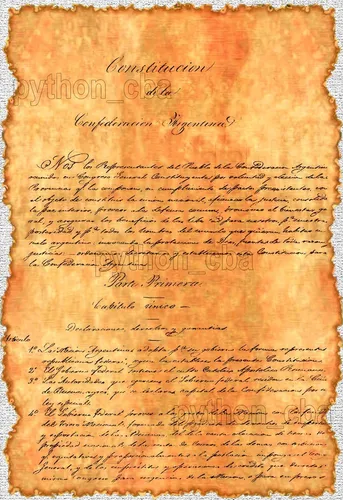 Constitucion
de la
Confederación Argentina
Nos los Representantes del Pueblo de la Confederacion Argentina
reunidos en Congreso General Constituyente por voluntad y eleccion de las
Provincias que la componen, en cumplimiento de pactos preexistentes, con
el objeto de constituir la union nacional, afianzar la justicia, consolidar
la paz interior, proveer a la defensa comun, promover el bienestar
y asegurar los beneficios de la libertad para nosotros, para nuestra
posteridad y para todos los hombres del mundo que quieran habitar en el
suelo argentino: invocando la proteccion de Dios, fuente de toda razon y
justicia: ordenamos, decretamos y establecemos esta Constitucion para
la Confederacion Argentina
Parte Primera
Capitulo único
Declaraciones, derechos y garantias
Articulo
1º La Nacion Argentina adopta para su gobierno la forma representativa
republicana federal, la presente Constitucion.
2º El Gobierno Federal sostiene el culto Católico Apostólico Romano.
3º Las Autoridades que ejercen el Gobierno federal residen en la Ciudad
de Buenos Ayres, que se declara capital de la Confederacion por una
ley especial.
4º El Gobierno Federal provee a los gastos de la Nacion con los fondos
del Tesoro Nacional, formado del producto de derechos de importacion
y esportacion
propiedad nacional, de la renta de Correos, de las demas contribuciones
que equitativa y proporcionalmente a la poblacion imponga el Congreso
General, y de los empréstitos y operaciones de crédito que decrete el
mismo Congreso para urgencias de la Nacion, o para empresas de
python_cba
python_cba
python_cba